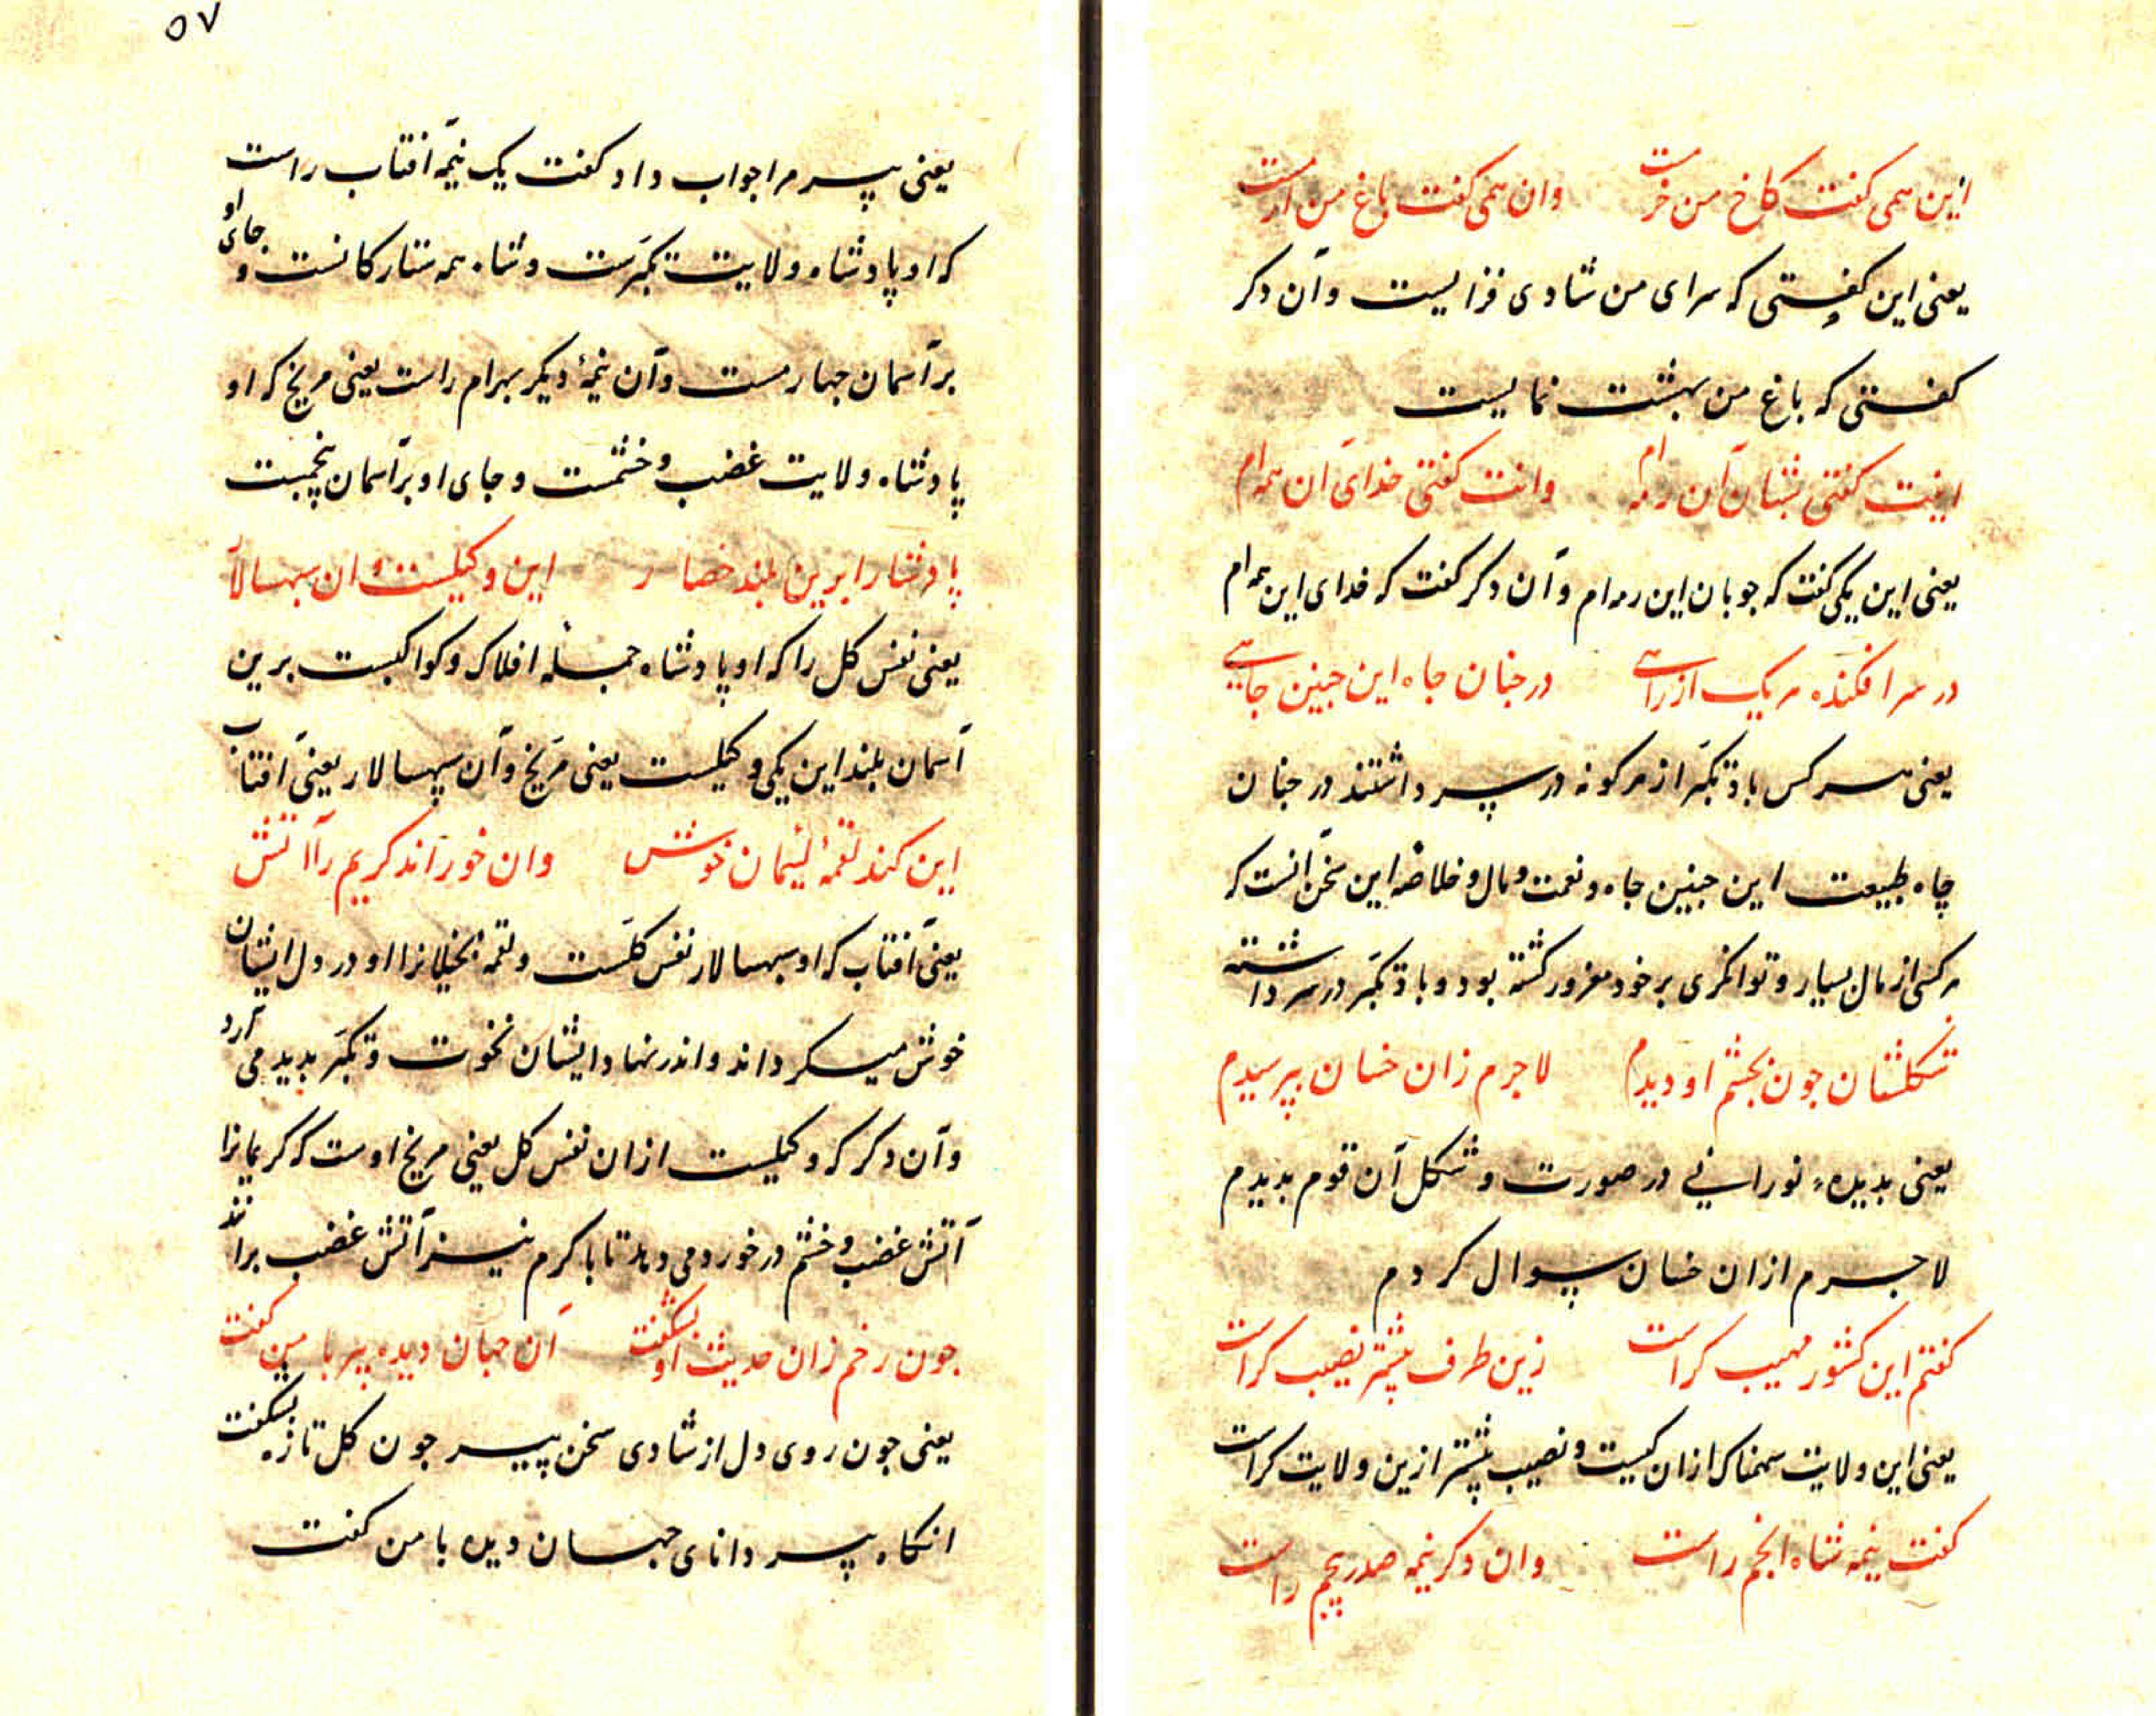 این همی گفت کاخ من خرمست وان همی گفت باغ من ارمست
یعنی این گفتی که سرای من شادی فزایست و آن دکر
کفتی که باغ من بهشت نمایست
اینت کفتی شبان آن رمه ام وانت کفتی خدای آن همه ام
یعنی این یکی کفت که جوبان این رمه ام و آن دکر کفت که خدای این همه ام
در سر افکنده هر یک از راهی در جنان جاه این جنین جاهی
یعنی هر کس باد تکبر از هر کونه در سر داشتند در جنان
چاه طبیعت این جنین جاه و نعمت و مال و خلاصه این سخن آنست که
هر کسی از مال بسیار و توانکری بر خود مغرور کشته بود و باد تکبر در سر داشته
شکلشان جون بجشم او دیدم لاجرم زان خسان بپرسیدم
یعنی بدیده نورانی در صورت و شکل آن قوم بدیدم
لاجرم ازان خسان سوال کردم
کفتم این کشور مهیب کراست زین طرف بیشتر نصیب کراست
یعنی این ولایت سهمناک ازان کیست و نصیب بیشتر ازین ولایت کراست
کفت نیمه شاه انجم راست وان دکر نیمه صدر پنجم راست
۵۷
یعنی پیر مرا جواب داد کفت یک نیمه آفتاب راست
که او پادشاه ولایت تکبرست و شاه همه ستارکانست و جای او
بر آسمان جهارمست و آن نیمهٔ دیکر بهرام راست یعنی مریخ که او
پادشاه ولایت غضب و خشمست و جای او بر آسمان پنجمست
پادشا را برین بلند حصار این وکیلست و ان سپهسالار
یعنی نفس کل را که او پادشاه جمله افلاک و کواکبست برین
آسمان بلند این یکی وکیلست یعنی مریخ و آن سپهسالار یعنی آفتاب
این کند لقمهٔ لئیمان خوش وان خوراند کریم را آتش
یعنی آفتاب که او سپهسالار نفس کلست و لقمه بخیلانرا او در دل ایشان
خوش میکرداند و اندر نهاد ایشان نخوت و تکبر بدید می آرد
و آن دکر که وکیلست ازان نفس کل یعنی مریخ اوست که کریمانرا
آتش غضب و خشم در خورد می دهد تا با کرم نیز آتش غضب برانند
جون رخم زان حدیث او بشکفت آن جهان دیده پیر با من کفت
یعنی جون روی دل از شادی سخن پیر جون کل تازه بشکفت
انکاه پیر دانای جهان دیده با من کفت